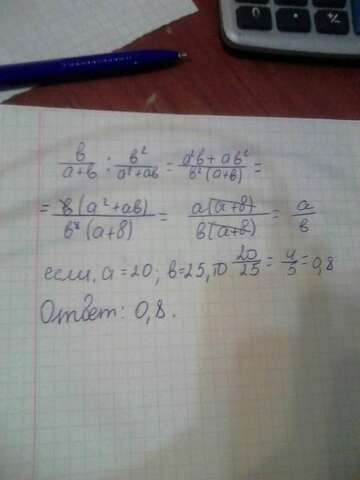 в/(a+в) : в²/(a²+aв) = (a²в+aв²)/(в²(a+в)) =
= в(a²+aв)/(в²(a+в)) = a(a+в)/(в(a+в)) = a/в
если, a=20; в=25, то 20/25 = 4/5 = 0,8
Ответ: 0,8.